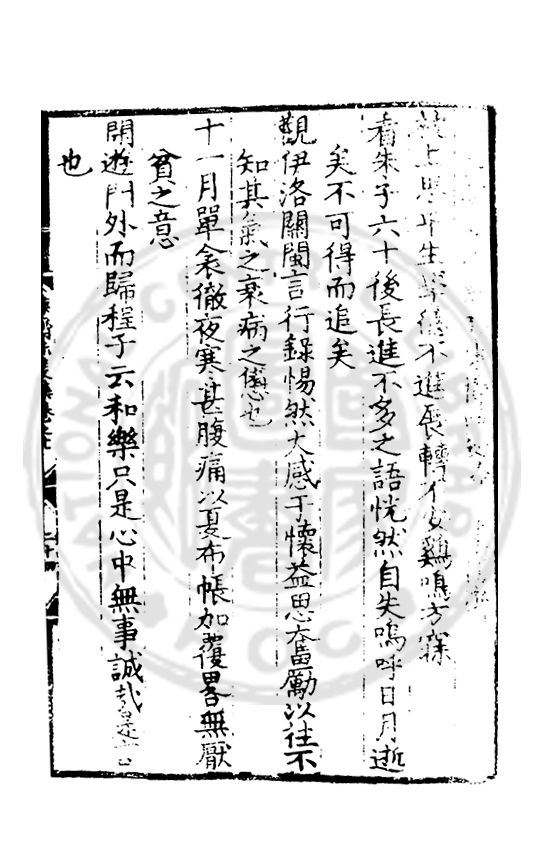 枕上思平生學德不進展轉不安鷄鳴方寐
看朱子六十後長進不多之語恍然自失嗚呼日月逝
矣不可得而追矣
觀伊洛關閩言行錄惕然大感于懷益思奮勵以往不
知其氣之衰病之憊也
十一月單衾徹夜寒甚腹痛以夏布帳加覆畧無厭
貧之意
閒遊門外而歸程子云和樂只是心中無事誠哉是言
也